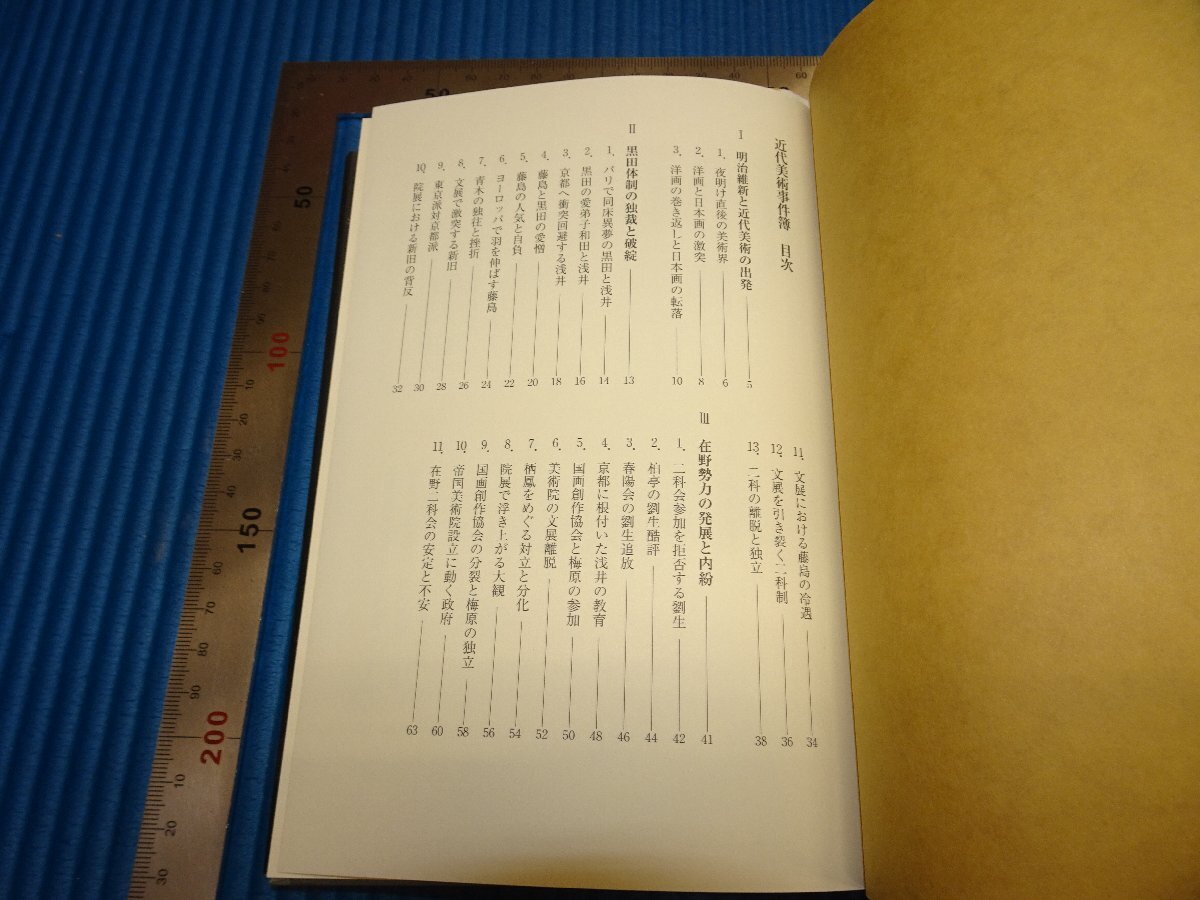 近代美術事件簿 目次
I 明治維新と近代美術の出発 5
1. 夜明け直後の美術界 6
2. 洋画と日本画の激突 8
3. 洋画の巻き返しと日本画の転落 10
II 黒田体制の独裁と破綻 13
1. パリで同床異夢の黒田と浅井 14
2. 黒田の愛弟子和田と浅井 16
3. 京都へ衝突回避する浅井 18
4. 藤島と黒田の愛憎 20
5. 藤島の人気と自負 22
6. ヨーロッパで羽を伸ばす藤島 24
7. 青木の独往と挫折 26
8. 文展で激突する新旧 28
9. 東京派対京都派 30
10. 院展における新旧の背反 32
11. 文展における藤島の冷遇 34
12. 文展を引き裂く二科制 36
13. 二科の離脱と独立 38
III 在野勢力の発展と内紛 41
1. 二科会参加を拒否する劉生 42
2. 柏亭の劉生酷評 44
3. 春陽会の劉生追放 46
4. 京都に根付いた浅井の教育 48
5. 国画創作協会と梅原の参加 50
6. 美術院の文展離脱 52
7. 栖鳳をめぐる対立と分化 54
8. 院展で浮き上がる大観 56
9. 国画創作協会の分裂と梅原の独立 58
10. 帝国美術院設立に動く政府 60
11. 在野二科会の安定と不安 63
50
50
100
150
200